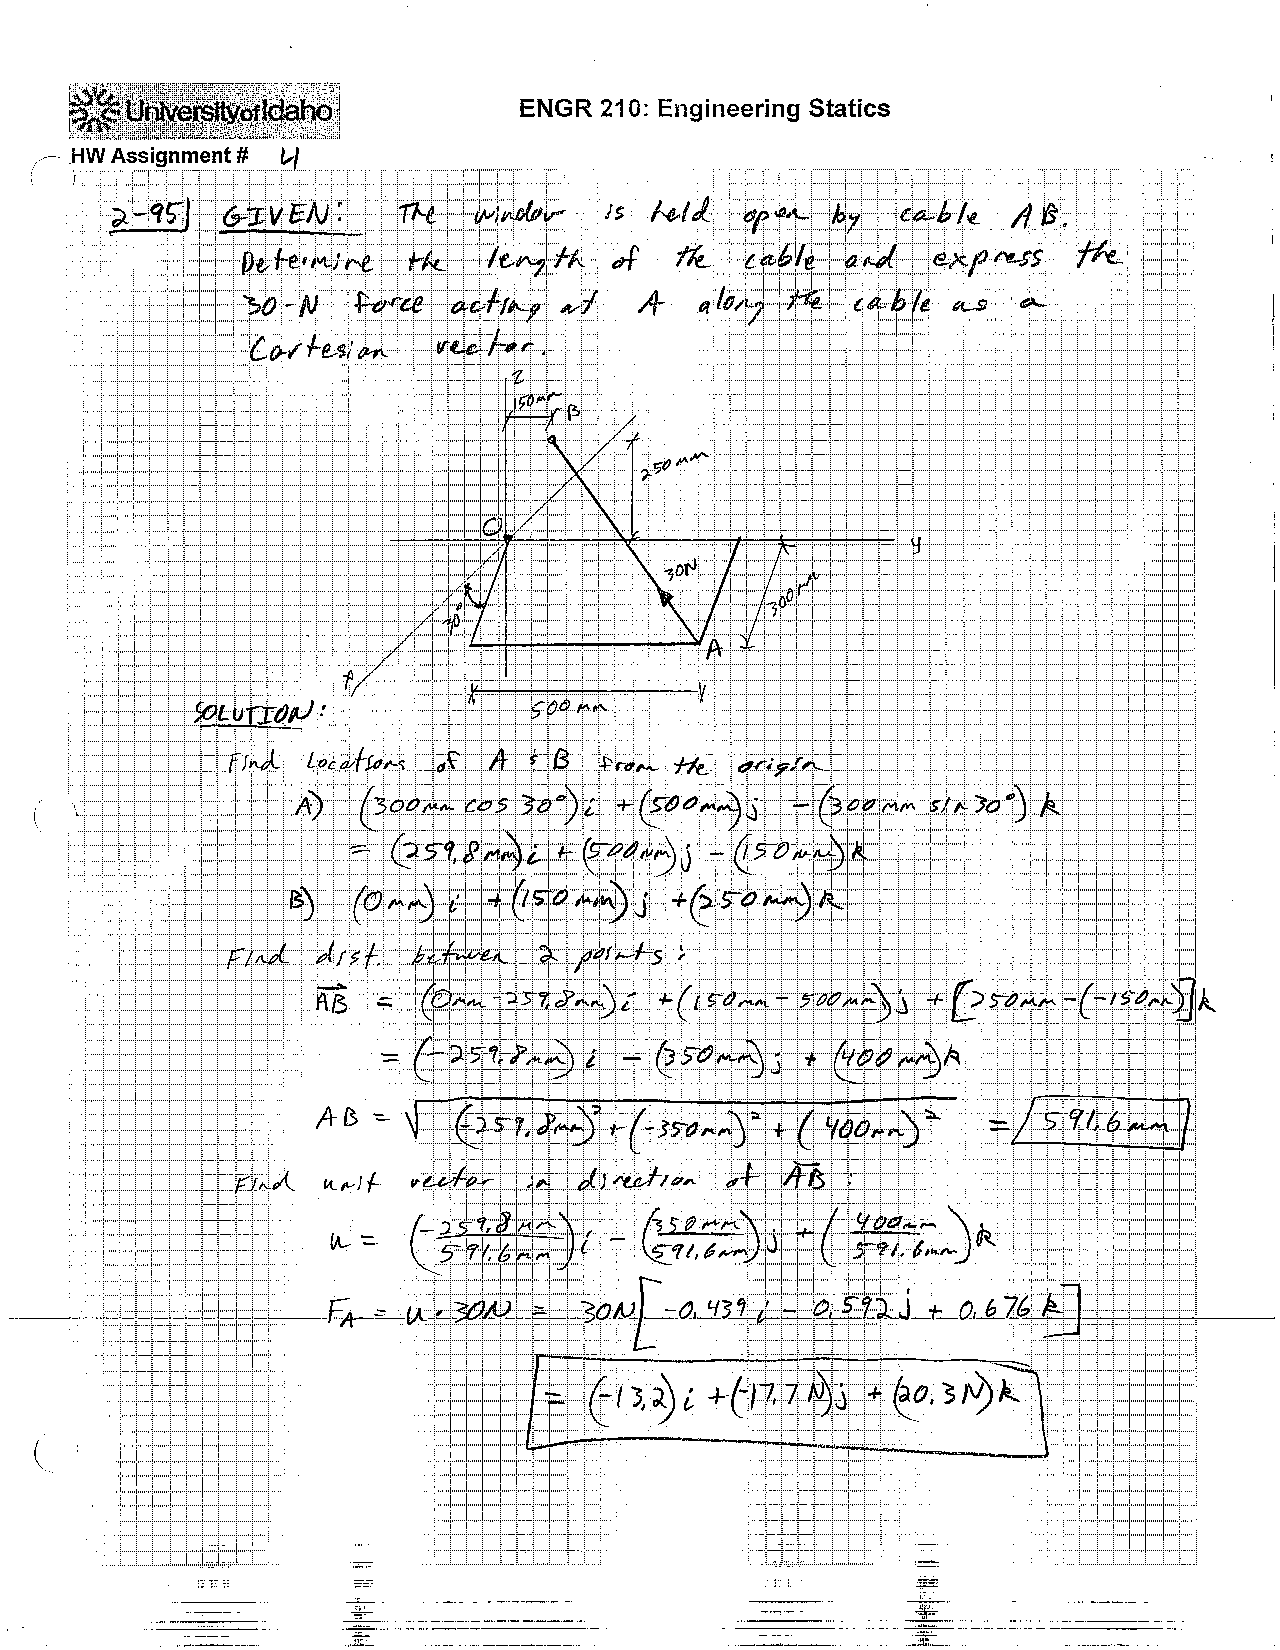 University of Idaho
ENGR 210: Engineering Statics
HW Assignment # 4
2-95) GIVEN: The window is held open by cable AB.
Determine the length of the cable and express the
30-N force acting at A along the cable as a
Cartesian vector.
z
150mm
B
250mm
O
y
30N
30°
300mm
A
x
500mm
SOLUTION:
Find Locations of A & B from the origin
A) (300mm cos 30°)i + (500mm)j - (300mm sin 30°)k
= (259.8mm)i + (500mm)j - (150mm)k
B) (0mm)i + (150mm)j + (250mm)k
Find dist. between 2 points:
AB = (0mm-259.8mm)i + (150mm-500mm)j + [250mm-(-150mm)]k
= (-259.8mm)i - (350mm)j + (400mm)k
AB = √(-259.8mm)² + (-350mm)² + (400mm)² = 591.6mm
Find unit vector in direction of AB:
u = (-259.8mm/591.6mm)i - (350mm/591.6mm)j + (400mm/591.6mm)k
FA = u · 30N = 30N[-0.439i - 0.592j + 0.676k]
= (-13.2)i + (-17.7N)j + (20.3N)k